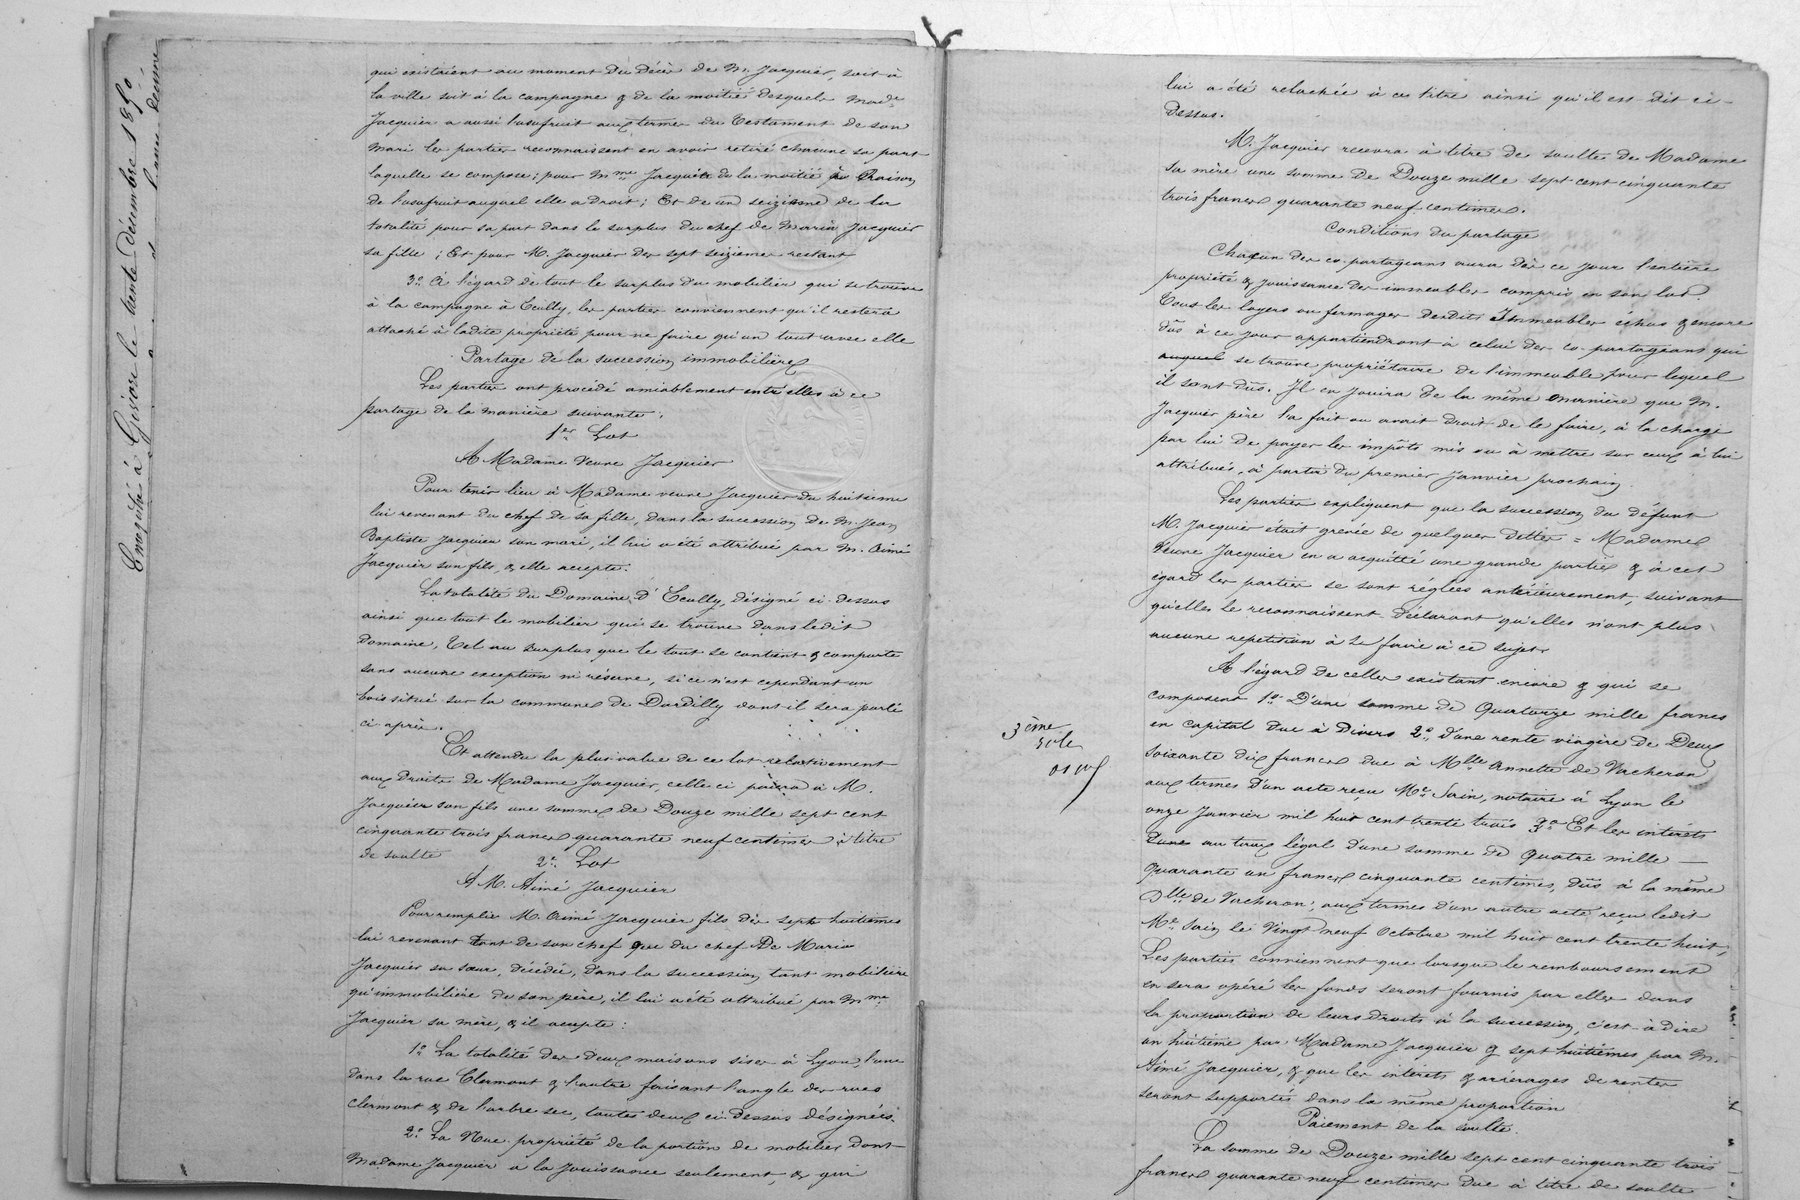 Enregistré à Givors le trente décembre 1850
qui existaient au moment du décès de M. Jacquier, soit à
la ville soit à la campagne & de la moitié desquels Made
Jacquier a aussi l'usufruit aux termes du testament de son
mari les parties reconnaissent en avoir retiré chacune sa part
laquelle se compose; pour Mme Jacquier de la moitié en raison
de l'usufruit auquel elle a droit; Et de un seizième de la
totalité pour sa part dans le surplus du chef de Maria Jacquier
sa fille; Et pour M. Jacquier des sept seizièmes restant
3o. à l'égard de tout le surplus du mobilier qui se trouve
à la campagne à Ecully, les parties conviennent qu'il restera
attaché à ladite propriété pour ne faire qu'un tout avec elle
Partage de la succession immobilière
Les parties ont procédé amiablement entre elles à ce
partage de la manière suivante:
1er Lot
A Madame Veuve Jacquier
Pour tenir lieu à Madame veuve Jacquier du huitième
lui revenant du chef de sa fille, dans la succession de M. Jean
Baptiste Jacquier son mari, il lui a été attribué par M. Aimé
Jacquier son fils, & elle accepte:
La totalité du Domaine d'Ecully, désigné ci-dessus
ainsi que tout le mobilier qui se trouve dans ledit
Domaine, tel au surplus que le tout se contient & comporte
sans aucune exception ni réserve, si ce n'est cependant un
bois situé sur la commune de Dardilly dont il sera parlé
ci après.
Et attendu la plus value de ce lot relativement
aux droits de Madame Jacquier, celle ci paiera à M.
Jacquier son fils une somme de Douze mille sept cent
cinquante trois francs quarante neuf centimes à titre
de soulte
2e. Lot
A M. Aimé Jacquier
Pour remplir M. Aimé Jacquier fils des sept huitièmes
lui revenant tant de son chef que du chef de Maria
Jacquier sa sœur, décédée, dans la succession tant mobilière
qu'immobilière de son père, il lui a été attribué par Mme
Jacquier sa mère, & il accepte:
1o. La totalité des deux maisons sises à Lyon, l'une
dans la rue Clermont & l'autre faisant l'angle des rues
Clermont & de l'arbre sec, toutes deux ci-dessus désignées.
2o. La Nue propriété de la portion de mobilier dont
Madame Jacquier a la jouissance seulement, & qui
lui a été relachée à ce titre ainsi qu'il est dit ci-
dessus.
M. Jacquier recevra à titre de soulte de Madame
sa mère une somme de Douze mille sept cent cinquante
trois francs quarante neuf centimes.
Conditions du partage
Chacun des co-partageans aura dès ce jour l'entière
propriété & jouissance des immeubles compris en son lot.
Tous les loyers ou fermages desdits Immeubles échus & encore
dûs à ce jour appartiendront à celui des co-partageans qui
auquel se trouve propriétaire de l'immeuble pour lequel
il sont dûs. Il en jouira de la même manière que M.
Jacquier père l'a fait ou avait droit de le faire, à la charge
par lui de payer les impôts mis ou à mettre sur ceux à lui
attribués, à partir du premier Janvier prochain.
Les parties expliquent que la succession du défunt
M. Jacquier était grevée de quelques dettes = Madame
Veuve Jacquier en a acquitté une grande partie & à cet
égard les parties se sont réglées antérieurement, suivant
qu'elles le reconnaissent déclarant qu'elles n'ont plus
aucune répétition à se faire à ce sujet.
A l'égard de celles existant encore & qui se
composent 1o. D'une somme de Quatorze mille francs
en capital due à Divers 2o. d'une rente viagère de Deux
soixante dix francs due à Mlle Annette de Vacheron
aux termes d'un acte reçu Me. Sain, notaire à Lyon le
onze Janvier mil huit cent trente trois 3o. Et les intérêts
au taux légal d'une somme de Quatre mille
quarante un francs cinquante centimes, dûs à la même
Dlle de Vacheron, aux termes d'un autre acte reçu ledit
Me. Sain le Vingt neuf Octobre mil huit cent trente huit,
Les parties conviennent que lorsque le remboursement
en sera opéré les fonds seront fournis par elles dans
la proportion de leurs droits à la succession, c'est-à-dire
un huitième par Madame Jacquier & sept huitièmes par M.
Aimé Jacquier, & que les intérêts & arrérages de rentes
seront supportés dans la même proportion
Paiement de la soulte.
La somme de Douze mille sept cent cinquante trois
francs quarante neuf centimes due à titre de soulte
3ème
rôle